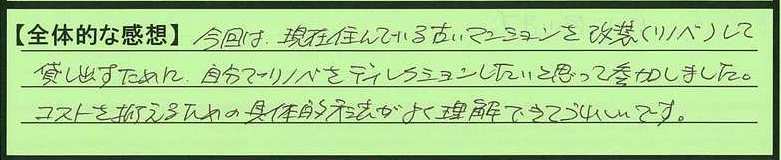 【全体的な感想】今回は、現在住んでいる古いマンションを改装(リノベ)して
貸し出すために、自分でリノベをディレクションしたいと思って参加しました。
コストを抑えるための具体的方法がよく理解できてうれしいです。